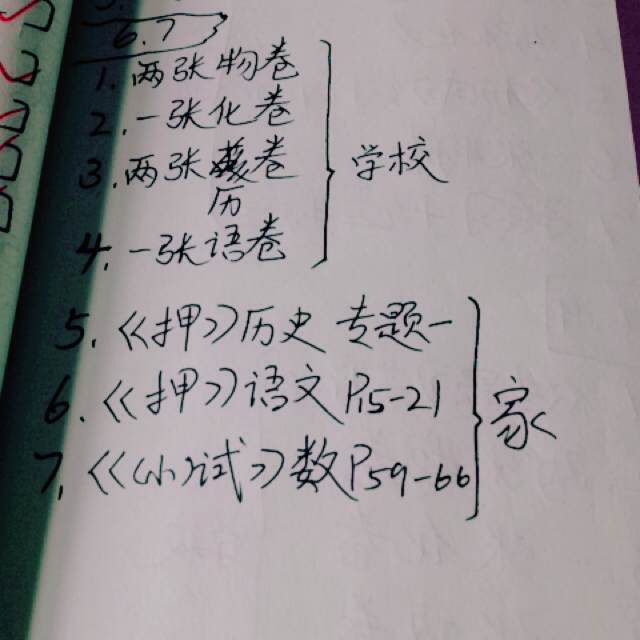 6.7
1. 两张物卷
2. 一张化卷
3. 两张卷
历
4. 一张语卷
学校
5. 《押》历史 专题一
6. 《押》语文P15-21
7. 《小试》数P59-66
家